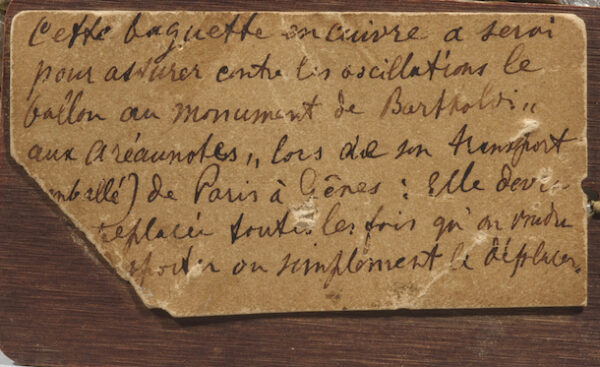 Cette baguette en cuivre a servi
pour assurer contre les oscillations le
ballon au monument de Bartholdi „
aux aréaunotes „ lors de son transport
mballé) de Paris à Gênes : Elle devr
replacée toutes les fois qu'on voudra
sporter ou simplement le déplacer.